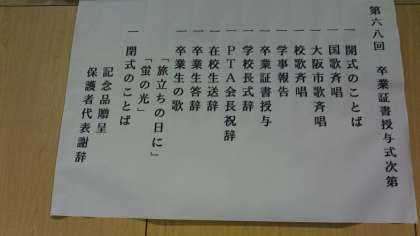 第六八回 卒業証書授与式次第
一 開式のことば
一 国歌斉唱
一 大阪市歌斉唱
一 校歌斉唱
一 学事報告
一 卒業証書授与
一 学校長式辞
一 PTA会長祝辞
一 在校生送辞
一 卒業生答辞
一 卒業生の歌
「旅立ちの日に」
「蛍の光」
一 閉式のことば
記念品贈呈
保護者代表謝辞